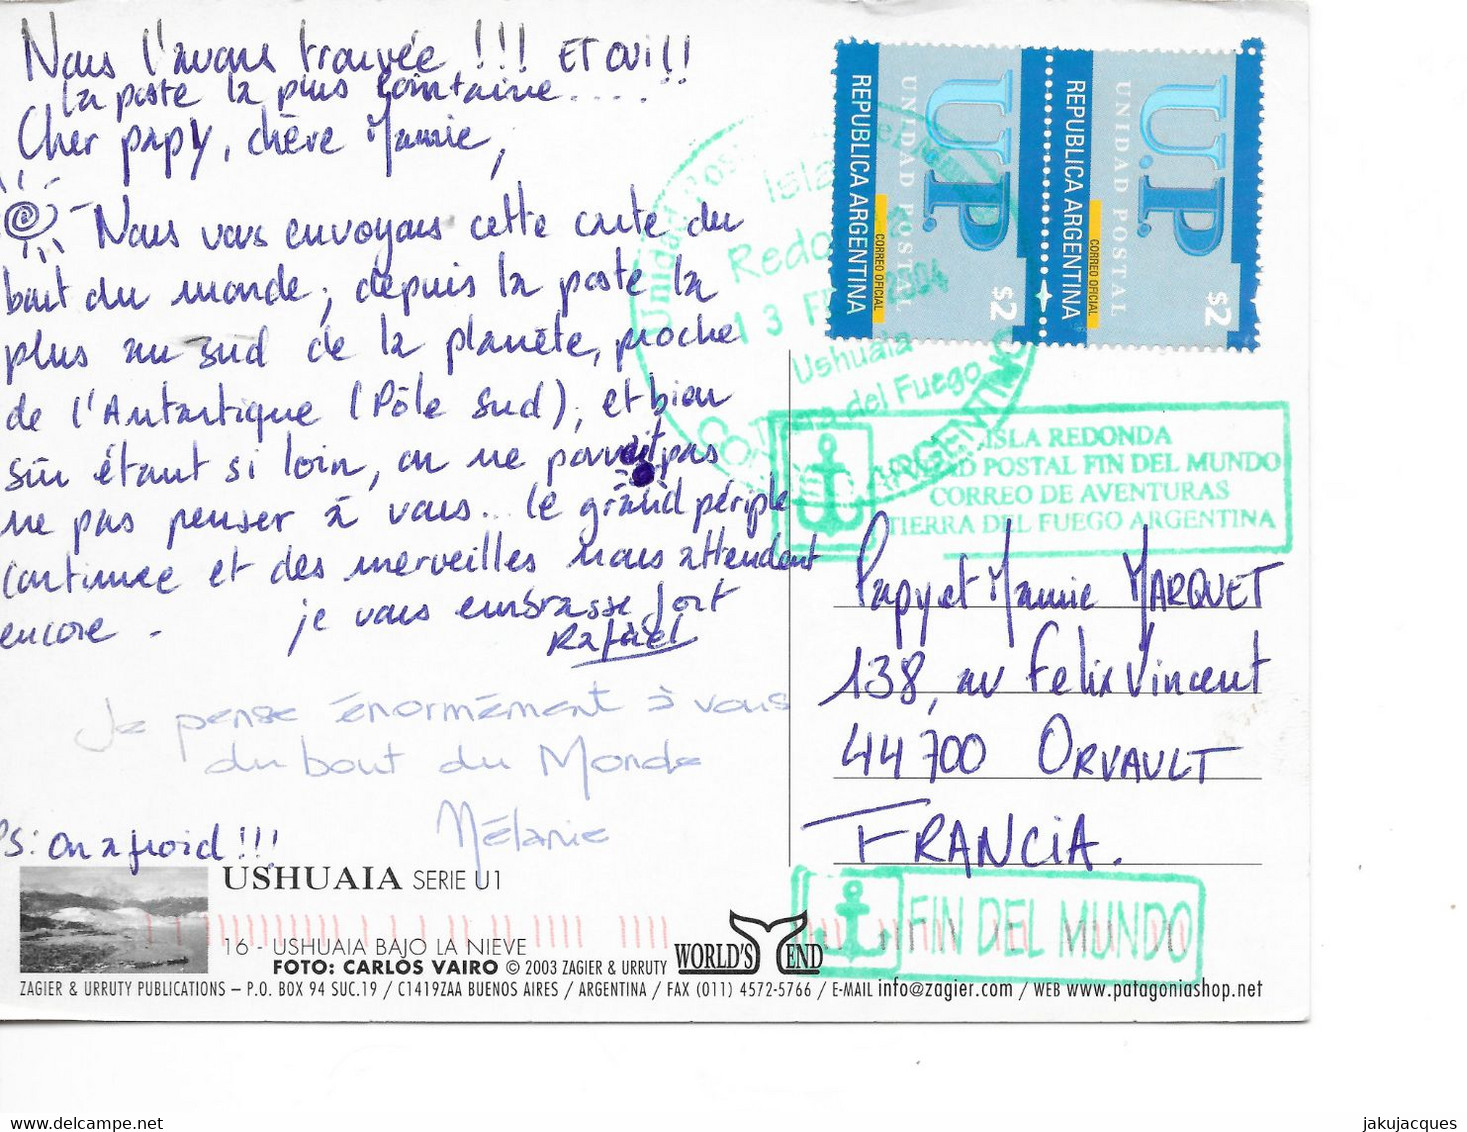 Nous l'avons trouvée !!! ET OUI!!
la poste la plus lointaine.....!!
Cher papy, chère Mamie,
Nous vous envoyons cette carte du
bout du monde, depuis la poste la
plus au sud de la planète, proche
de l'Antartique (Pôle Sud), et bien
sûr étant si loin, on ne pouvait pas
ne pas penser à vous.. le grand périple
continue et des merveilles nous attendent
encore. je vous embrasse fort
Rafaël
Je pense énormément à vous
du bout du Monde
Mélanie
PS: On a froid!!!
USHUAIA SERIE U1
16 - USHUAIA BAJO LA NIEVE
FOTO: CARLOS VAIRO © 2003 ZAGIER & URRUTY
WORLD'S END
ZAGIER & URRUTY PUBLICATIONS – P.O. BOX 94 SUC.19 / C1419ZAA BUENOS AIRES / ARGENTINA / FAX (011) 4572-5766 / E-MAIL info@zagier.com / WEB www.patagoniashop.net
REPUBLICA ARGENTINA
CORREO OFICIAL
UNIDAD POSTAL
U.P.
$2
REPUBLICA ARGENTINA
CORREO OFICIAL
UNIDAD POSTAL
U.P.
$2
Isla
13
Ushuaia
del Fuego
ARGENTINO
ISLA REDONDA
POSTAL FIN DEL MUNDO
CORREO DE AVENTURAS
TIERRA DEL FUEGO ARGENTINA
Papy et Mamie MARQUET
138, av Felix Vincent
44700 ORVAULT
FRANCIA.
FIN DEL MUNDO
delcampe.net
jakujacques